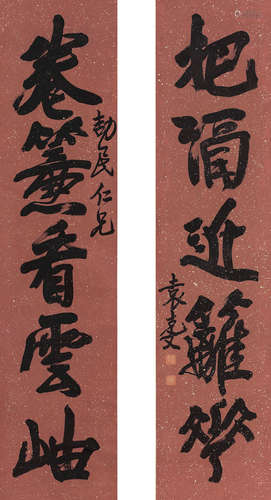 把酒近籬華
袁克文
劼民仁兄
卷簾看雲岫